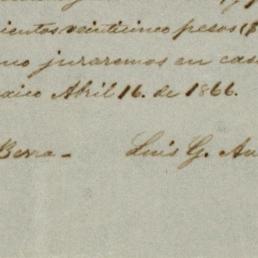 ientos veinticinco pesos ($
no juraremos en cas
xico Abril 16. de 1866.
Berra - Luis G. Au